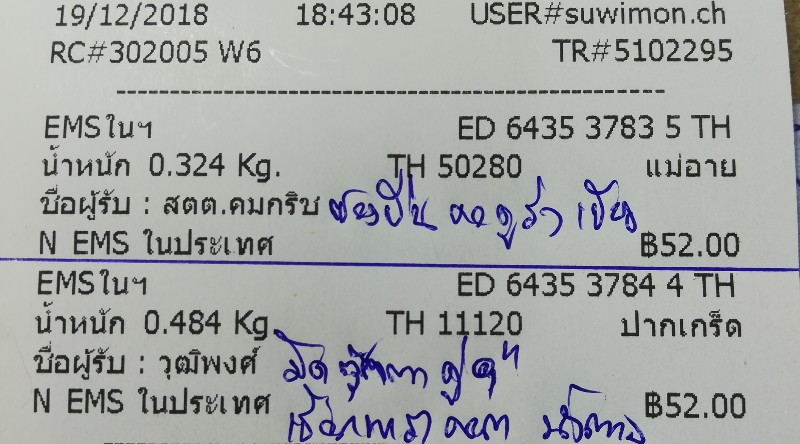 19/12/2018 18:43:08 USER#suwimon.ch
RC#302005 W6 TR#5102295
EMSในฯ ED 6435 3783 5 TH
น้ำหนัก 0.324 Kg. TH 50280 แม่อาย
ชื่อผู้รับ : สตต.คมกริช ซองปืน
N EMS ในประเทศ ฿52.00
EMSในฯ ED 6435 3784 4 TH
น้ำหนัก 0.484 Kg. TH 11120 ปากเกร็ด
ชื่อผู้รับ : วุฒิพงศ์ มีด
N EMS ในประเทศ ฿52.00